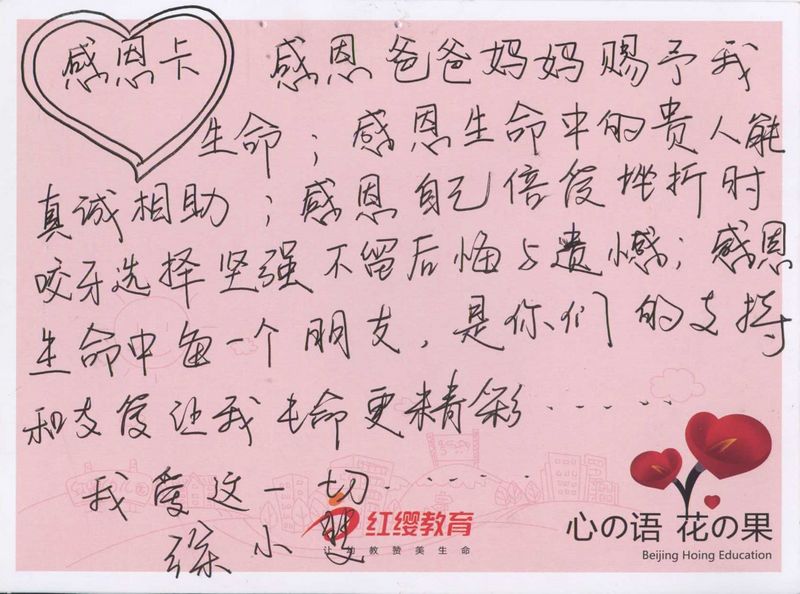 感恩卡
感恩爸爸妈妈赐予我
生命；感恩生命中的贵人能
真诚相助；感恩自己倍受挫折时
咬牙选择坚强不留后悔与遗憾；感恩
生命中每一个朋友，是你们的支持
和友爱让我生命更精彩······
我爱这一切······
徐小
红缨教育
让幼教赞美生命
心の语 花の果
Beijing Hoing Education